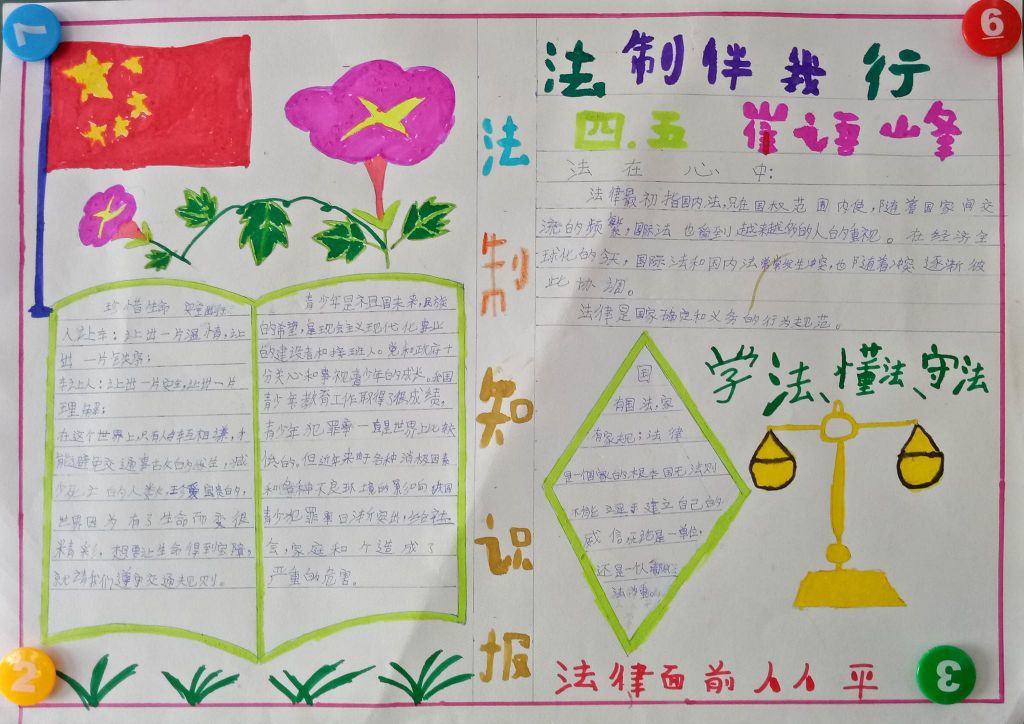 法制伴我行
四.五 崔语峰
法制知识报
珍惜生命
人让车：让出一片温情，让
出一片
车让人：让出一片安全，让出一片
理解；
在这个世界上，只有人车互相 才
能避免交通事故的发生，减
少死亡的人类，珍爱宝贵的，
世界因为有了生命而变很
精彩，想要让生命得到宝障，
就请我们遵守交通规则。
青少年是祖国未来，民族
的希望，是现会主义现代化事业
的建设者和接班人。党和政府十
分关心和事视青少年的成长。我国
青少年教育工作取得了 成绩，
青少年犯罪率一直是世界上比较
低的。但近年来 各种消极因素
和各种不良环境的影响 我国
青少犯罪率日渐突出，给社
会，家庭和个造成了
严重的危害。
法在心中：
法律最初指国内法，只在国权范围内使，随着国家间交
流的频繁，国际法也翕到越来越多的人的重视。在经济全
球化的今天，国际法和国内法常常发生冲突，也随着冲突逐渐彼
此协调。
法律是国家确定和义务的行为规范。
学法、懂法、守法
国
有国法，家
有家规；法律
是一个家的根本国无法则
不能 建立自己的
威信 是一单位，
还是一

法律面前人人平
7
6
2
3